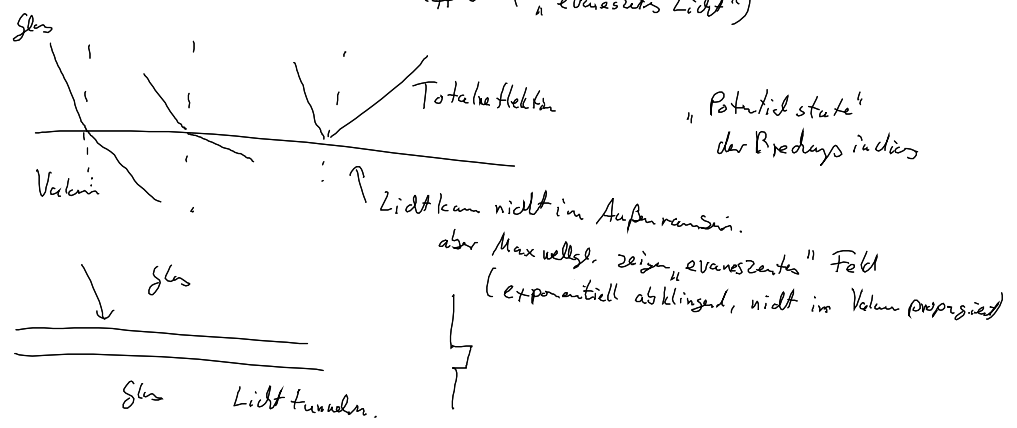 („evaneszentes Licht")
Glas
Totalreflektion
„Potentialstufe"
der Brechungsindizes
Vakuum
Licht kann nicht im Außenraum sein.
aber Maxwellgl. zeigen „evaneszentes" Feld
(exponentiell abklingend, nicht im Vakuum propagierend)
Glas
Glas
Licht tunneln.